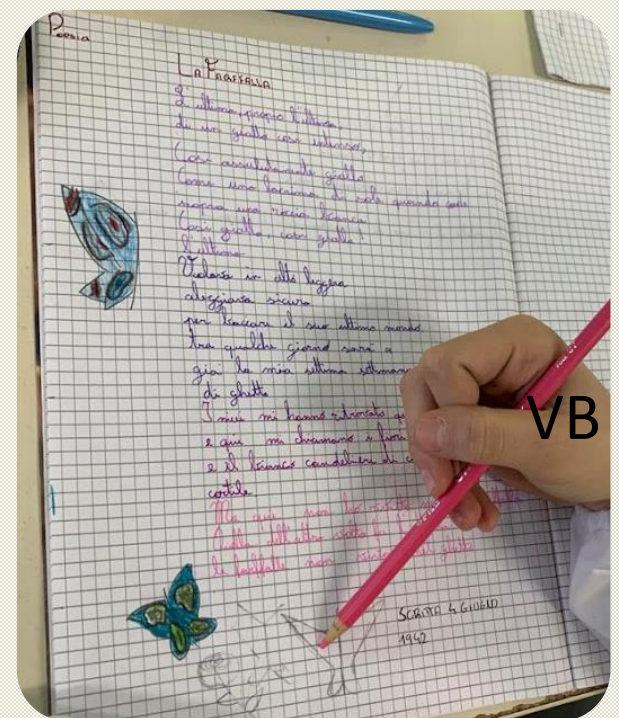 Poesia
LA FARFALLA
L'ultima, proprio l'ultima,
di un giallo così intenso,
Così assolutamente giallo
Come una lacrima di sole quando cade
sopra una roccia bianca
Così gialla, così gialla!
l'ultima
Volava in alto leggera
aleggiava sicura
per baciare il suo ultimo mondo.
tra qualche giorno sarà
già la mia settima settimana
di ghetto
I miei mi hanno ritrovato
e qui mi chiamano
e il bianco candeliere di
cortile
Ma qui non ho
Quella dell'altra volta fu
le farfalle non nel ghetto
SCRITTA 4 GIUGNO
1942
VB